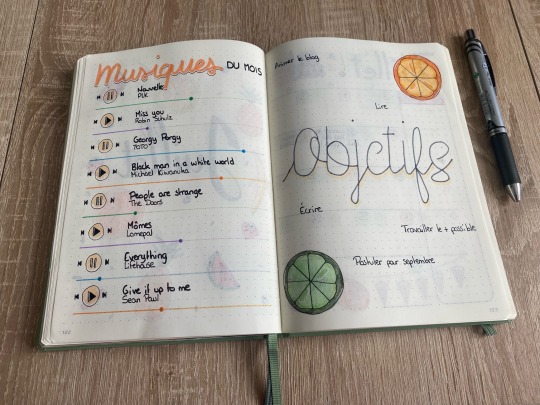 Musiques DU MOIS
Nouvelle
PLK
Miss you
Robin Schulz
Georgy Porgy
TOTO
Black man in a white world
Michael Kiwanuka
People are strange
The Doors
Mômes
Lomepal
Everything
Lifehouse
Give it up to me
Sean Paul
122
Animer le blog
Lire
Objctifs
Écrire
Travailler le + possible
Postuler pour septembre
123